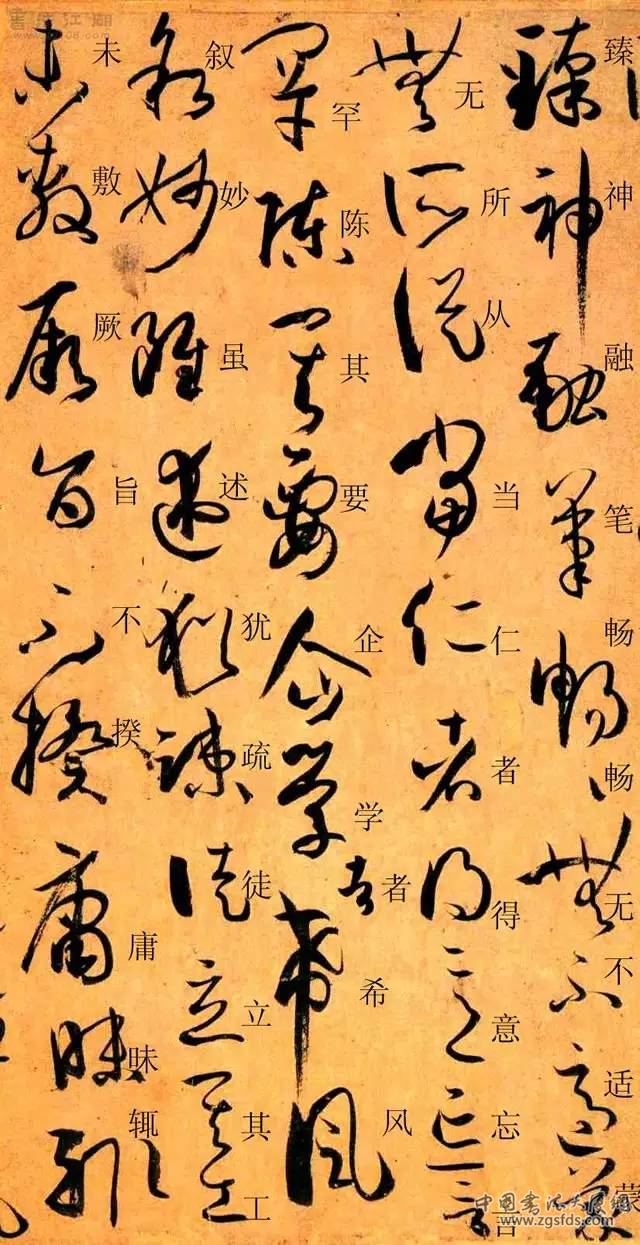 臻神融笔畅畅无不适蒙
无所从当仁者得意忘言
罕陈其要企学者希风
叙妙虽述犹疏徒立其工
未敷厥旨不揆庸昧辄
中国书法大展网
www.zgsfds.com